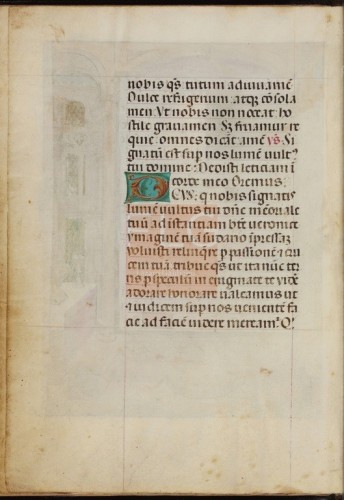 nobis q̄s tutum adiuuamē
Dulce refrigerium atq̨ cōsola
men Ut nobis non noceat ho
stile grauamen S̨ fruamur re
quie omnes dicāt amē v̄s. Si
gnatū est sup nos lumē uult⁹
tui domine : Dedisti leticiam ī
corde meo Oremus :
DEUS q̄ nobis signatis
lumīe uultus tui dn̄e memoriale
tuū ad īstantiam btē ueronice
ymaginē tuā sudario īpressaȝ
uoluisti relinq̄re p passionē ⁊ cru
cem tuā tribue q̄s ut ita nūc ter
ris p speculū in enigmate te uid̄e
adorare honorare ualeamus ut
te iudicem sup nos uenientē fa
cie ad faciē uidere meream̄. Q̄